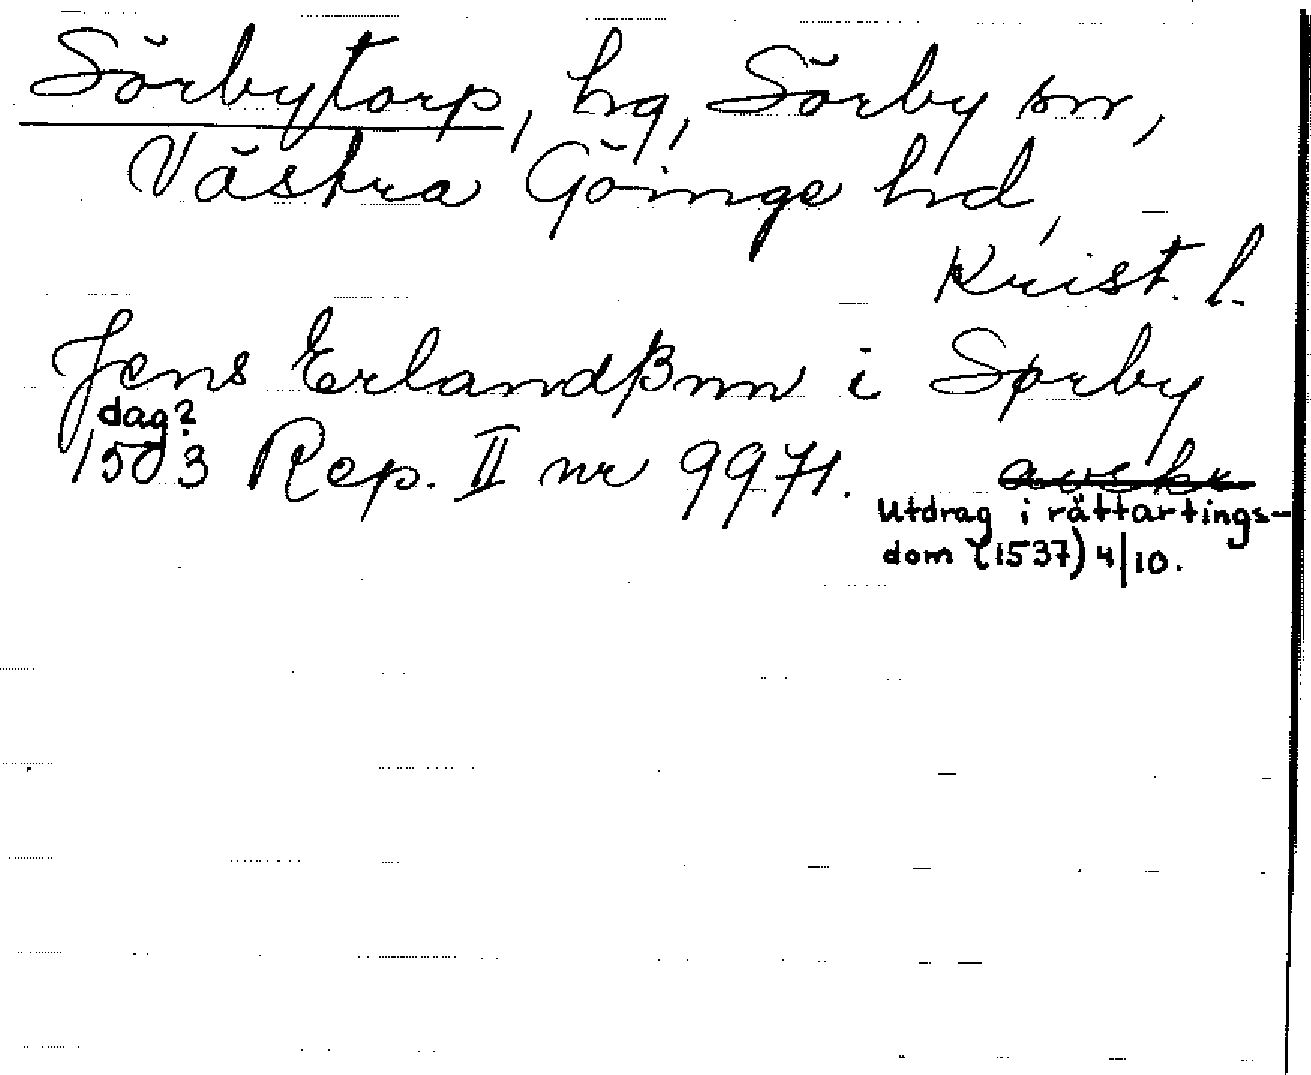 Sörbytorp, hg, Sörby sn,
Västra Göinge hd,
Krist. l.
Jens Erlandßnn i Sørby
dag?
1503 Rep. II nr 9971. avskr
Utdrag i rättartings-
dom (1537) 4/10.